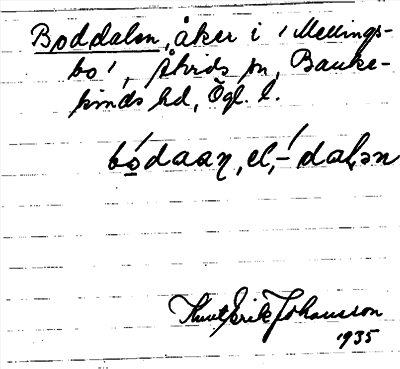 Boddalen, åker i 'Mellings-
bo', Åtvids sn, Banke-
kinds hd, Ögl. l.
bo̲´daan, el, -´dal,ən
Knut Erik Johansson
1935